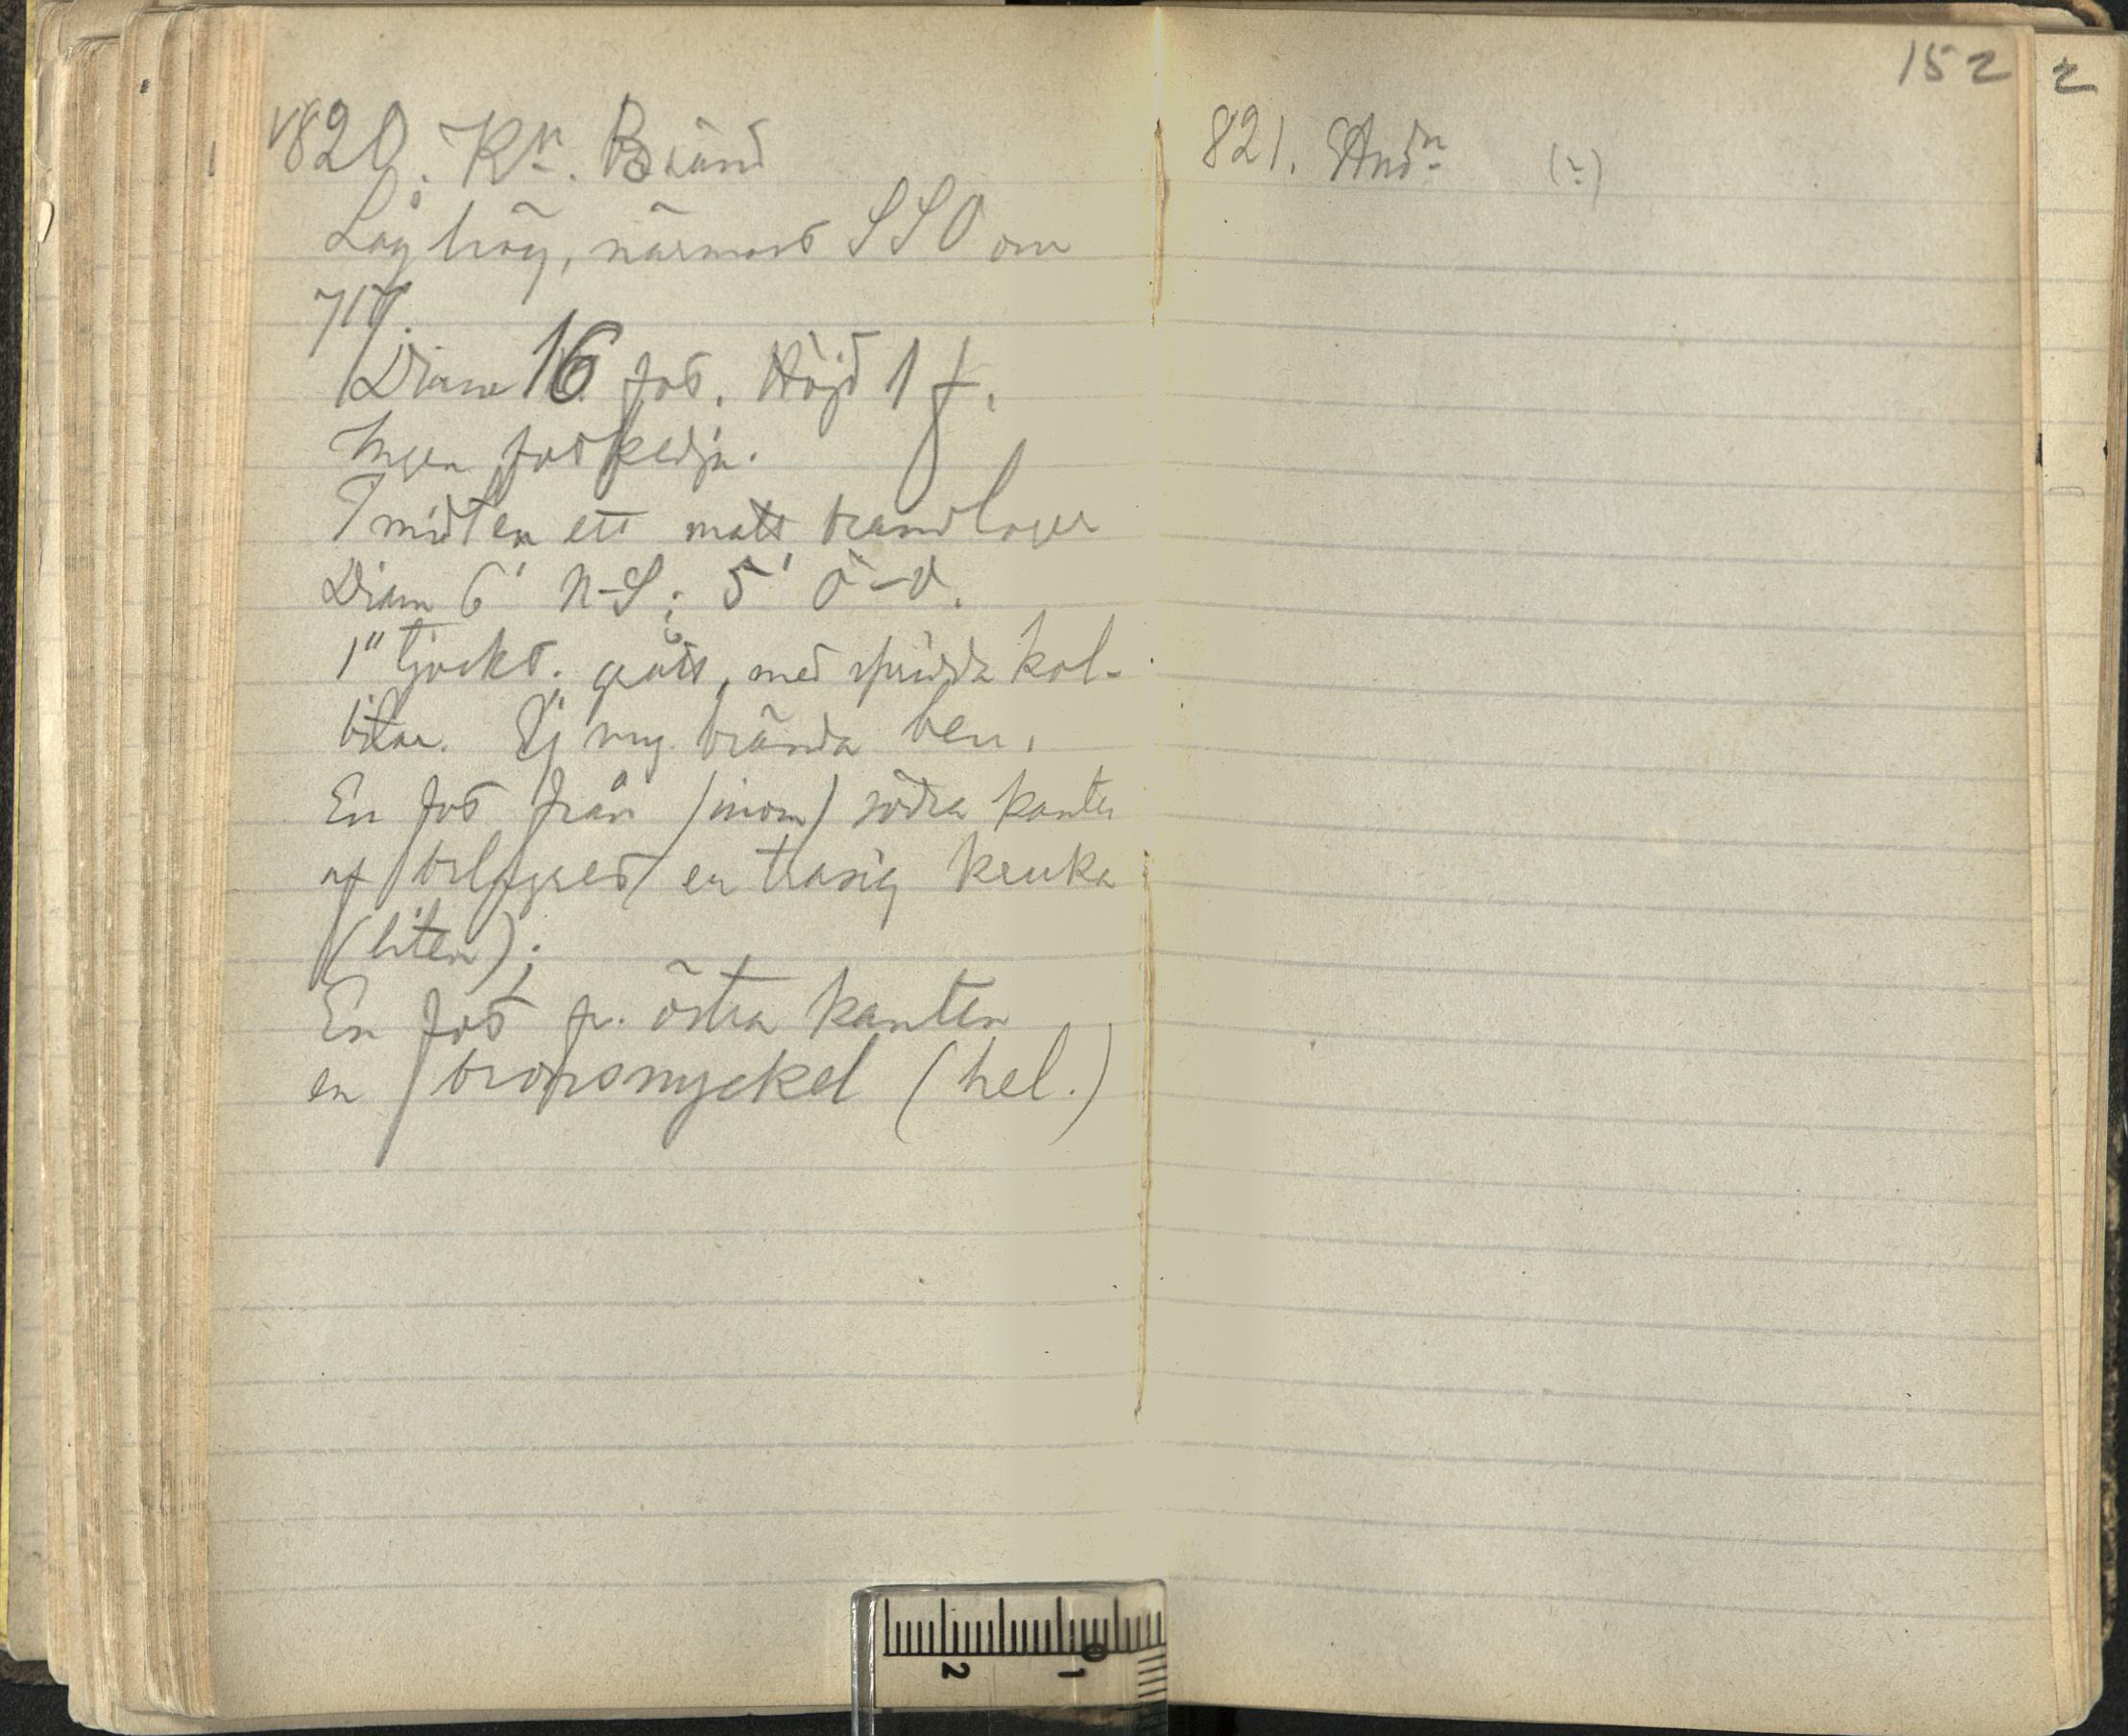 820. Kn. Bränd
Låg hög, närmast SSO om
Diam 16 fot. Höjd 1 f.
Ingen fotkedja.
I midten ett matt brandlager
Diam 6' N-S; 5' Ö-V.
1" tjockt. grått, med spridda kol-
bitar. Ej mg. brända ben.
En fot från (inom) södra kanten
af bålfgred en trasig kruka
(liten);
En fot fr. östra kanten
en bronsnyckel (hel.)
152
2
821. And
2
1
0